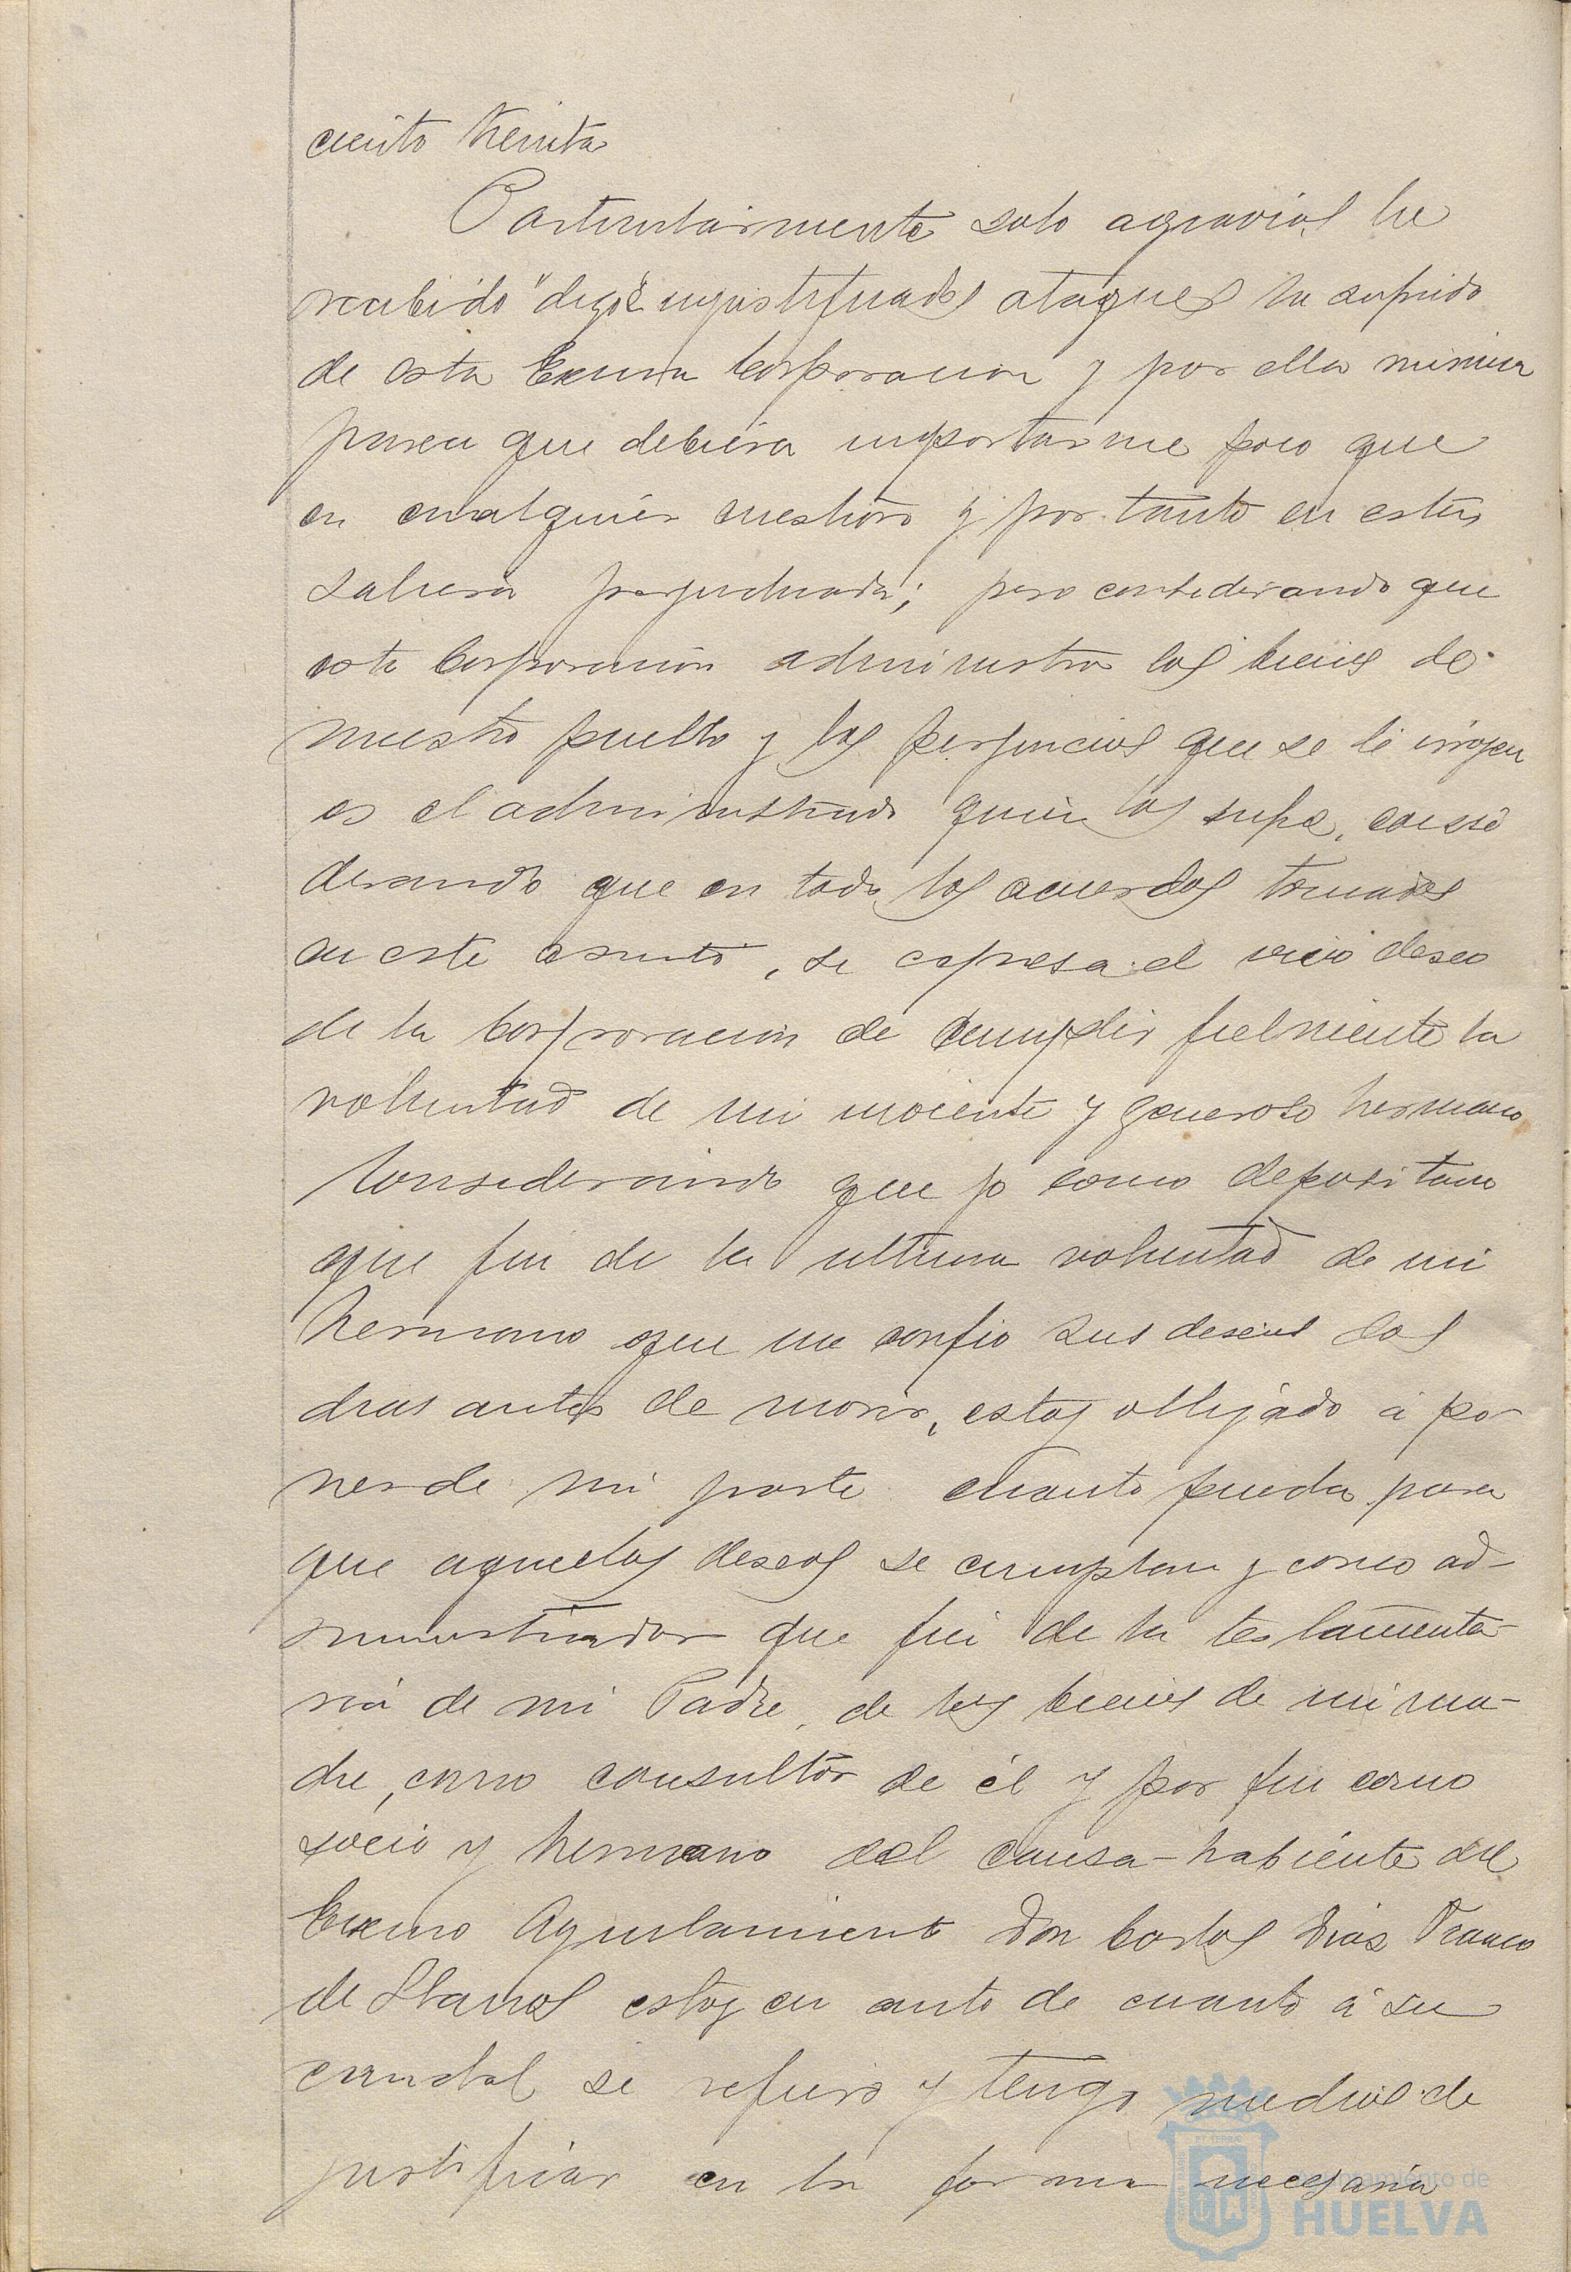 ciento treinta
Particularmente solo agravios he
recibido "digo" injustificados ataques he sufrido
de esta Excma Corporacion y por ello
parece que debiera importarme poco que
en cualquier cuestion y por tanto en esta
saliera perjudicada; pero considerando que
esta Corporación administra los bienes de
nuestro pueblo y los perjuicios que se le irrogan
es el administrado quien los sufre, consi
derando que en todos los acuerdos tomados
en este asunto, se expresa el vivo deseo
de la Corporacion de cumplir fielmente la
voluntad de mi inocente y generoso hermano
Considerando que yo como depositario
que fui de la ultima voluntad de mi
hermano que me confio sus deseos dos
dias antes de morir, estoy obligado á po
ner de mi parte cuanto pueda para
que aquellos deseos se cumplan y como ad-
ministrador que fui de la testamenta-
ria de mi Padre, de los bienes de mi ma-
dre, como consultor de él y por fin como
socio y hermano del causa-habiente del
Excmo Ayuntamiento Don Carlos Dias Franco
de Llanos estoy en auto de cuanto á su
caudal se refiere y tengo medios de
justificar en la forma necesaria
Ayuntamiento de
HUELVA